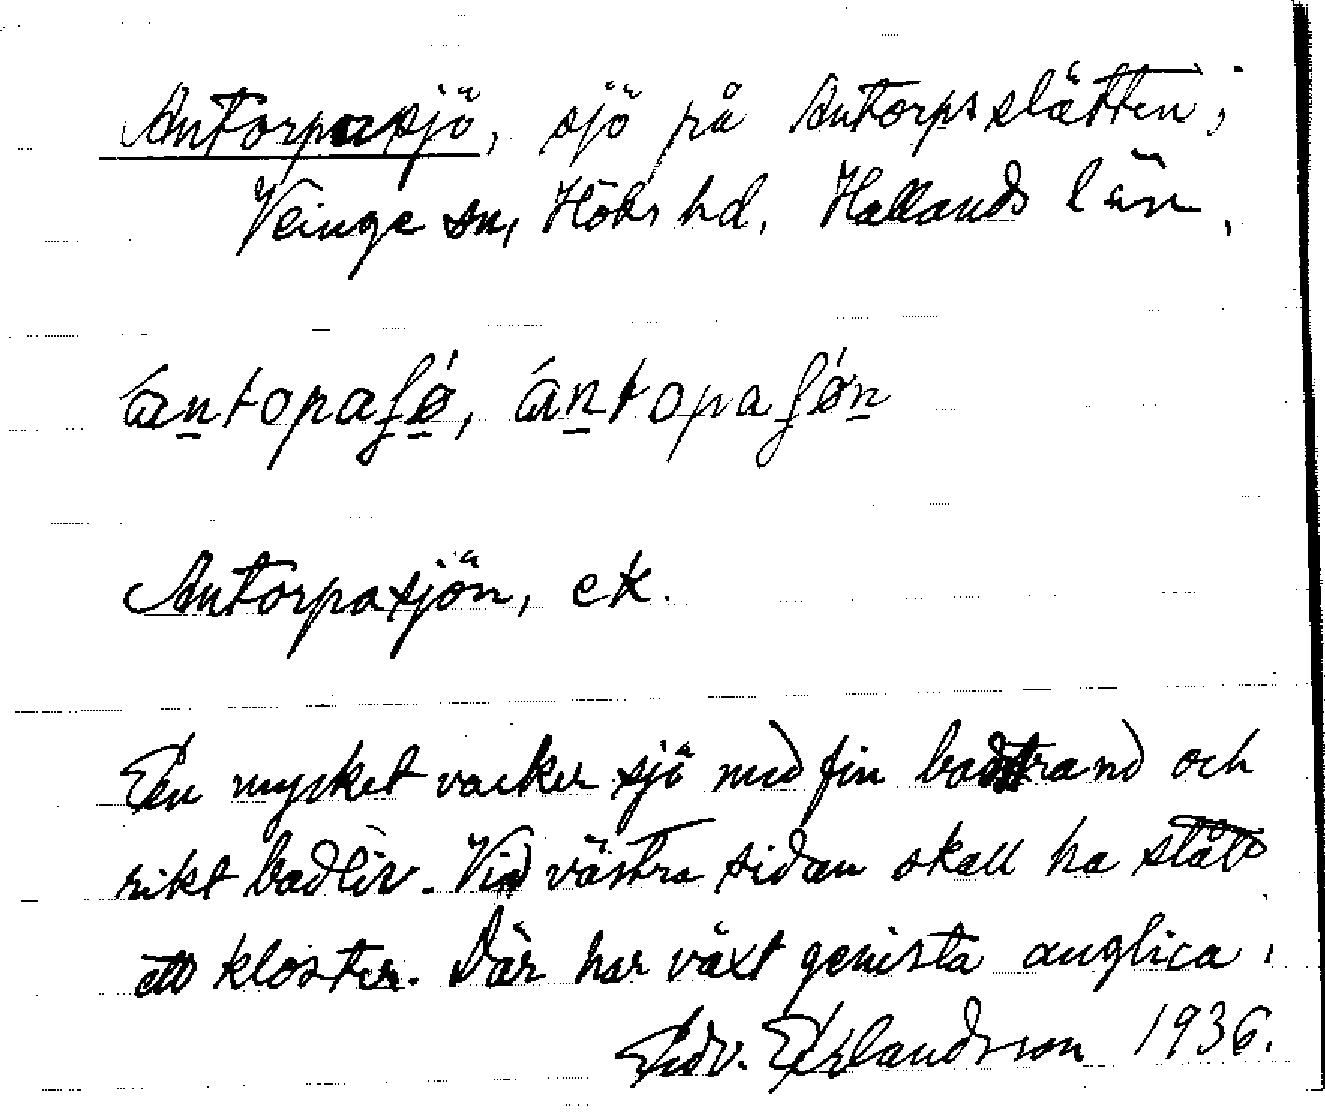 Antorpasjö, sjö på Antorpsslätten;
Veinge sn, Höks hd, Hallands län.
ántopaʃø̀, ántopaʃøn
Antorpasjön, ek.
En mycket vacker sjö med fin badstrand och
rikt badliv. Vid västra sidan skall ha stått
ett kloster. Där har växt genista anglica.
Edv. Erlandsson 1936.